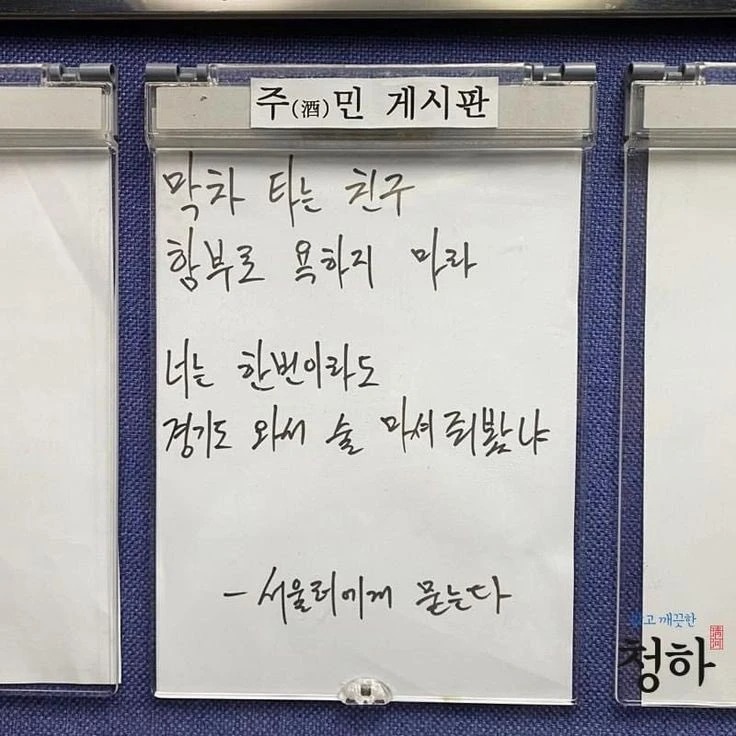 주(酒)민 게시판
막차 타는 친구
함부로 욕하지 마라
너는 한번이라도
경기도 와서 술 마셔줘봤냐
- 서울러에게 묻는다
맑고 깨끗한
청하